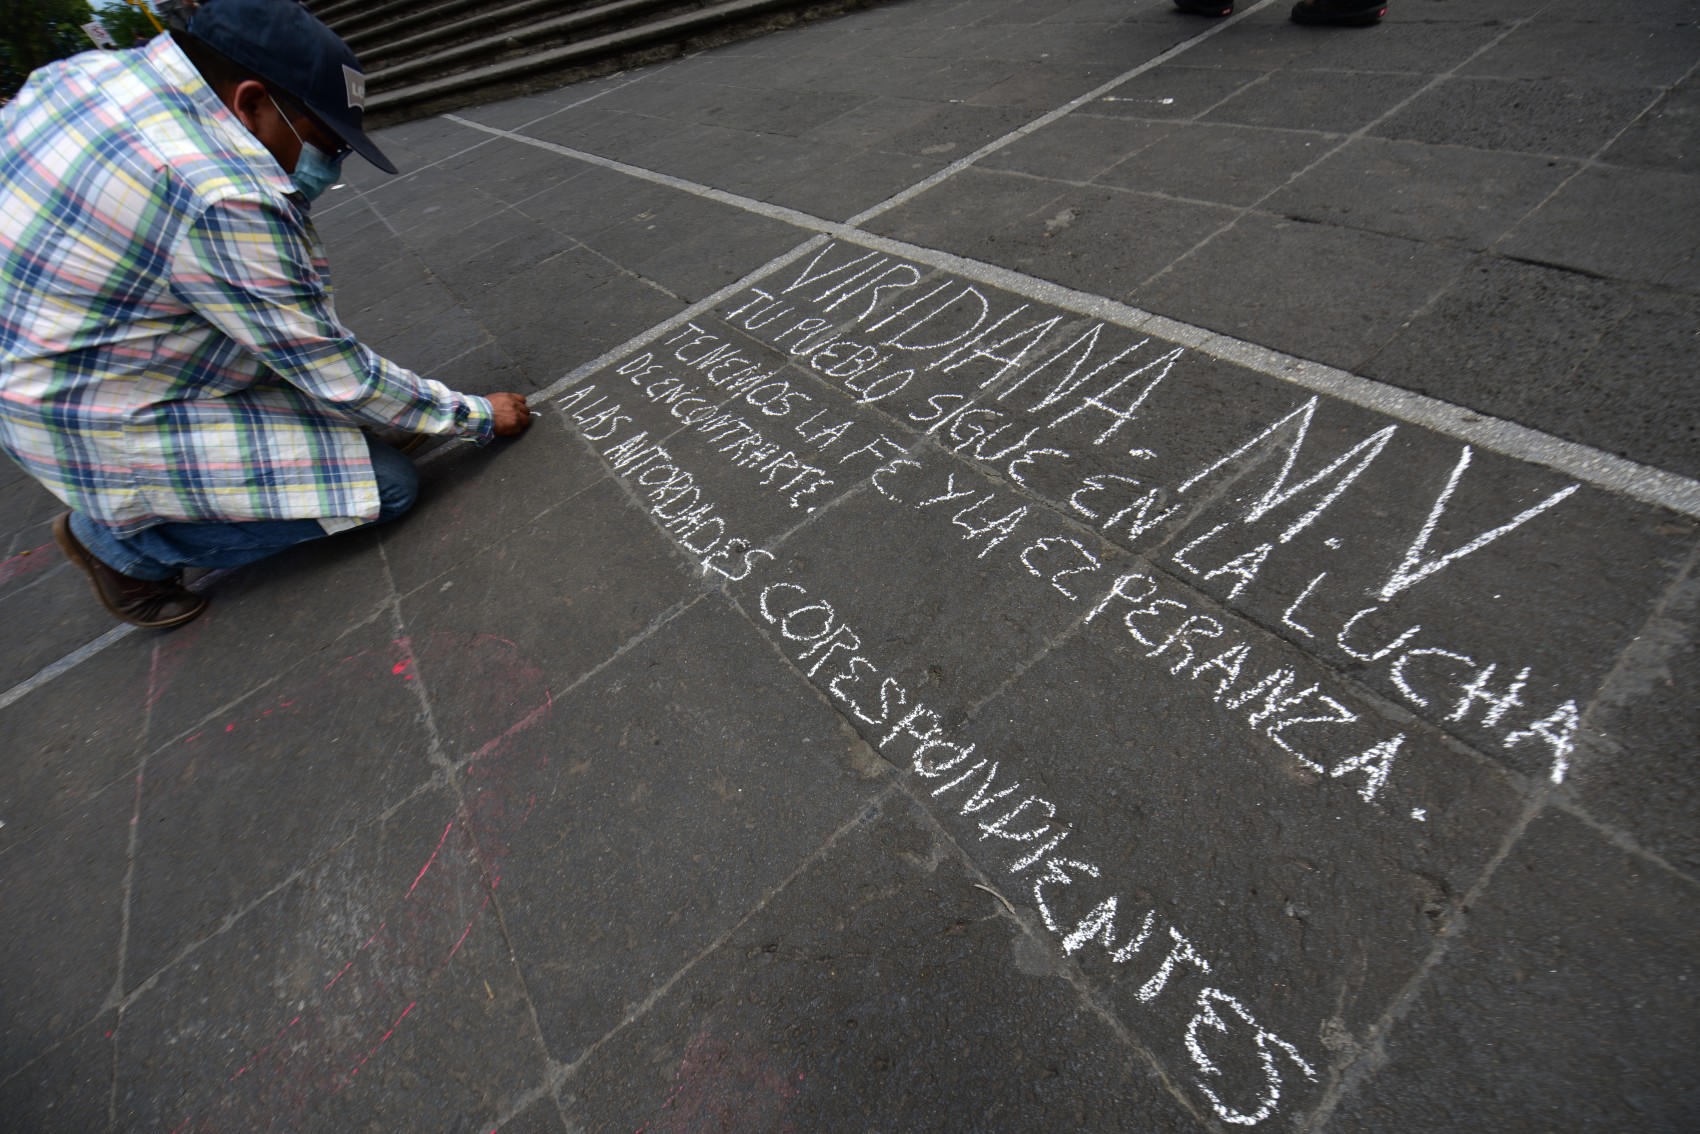 VIRIDIANA. M. V
TU PUEBLO SIGUE EN LA LUCHA
TENEMOS LA FE Y LA EZPERANZA.
DE ENCONTRARTE.
A LAS AUTORDADES CORESPONDIENTES